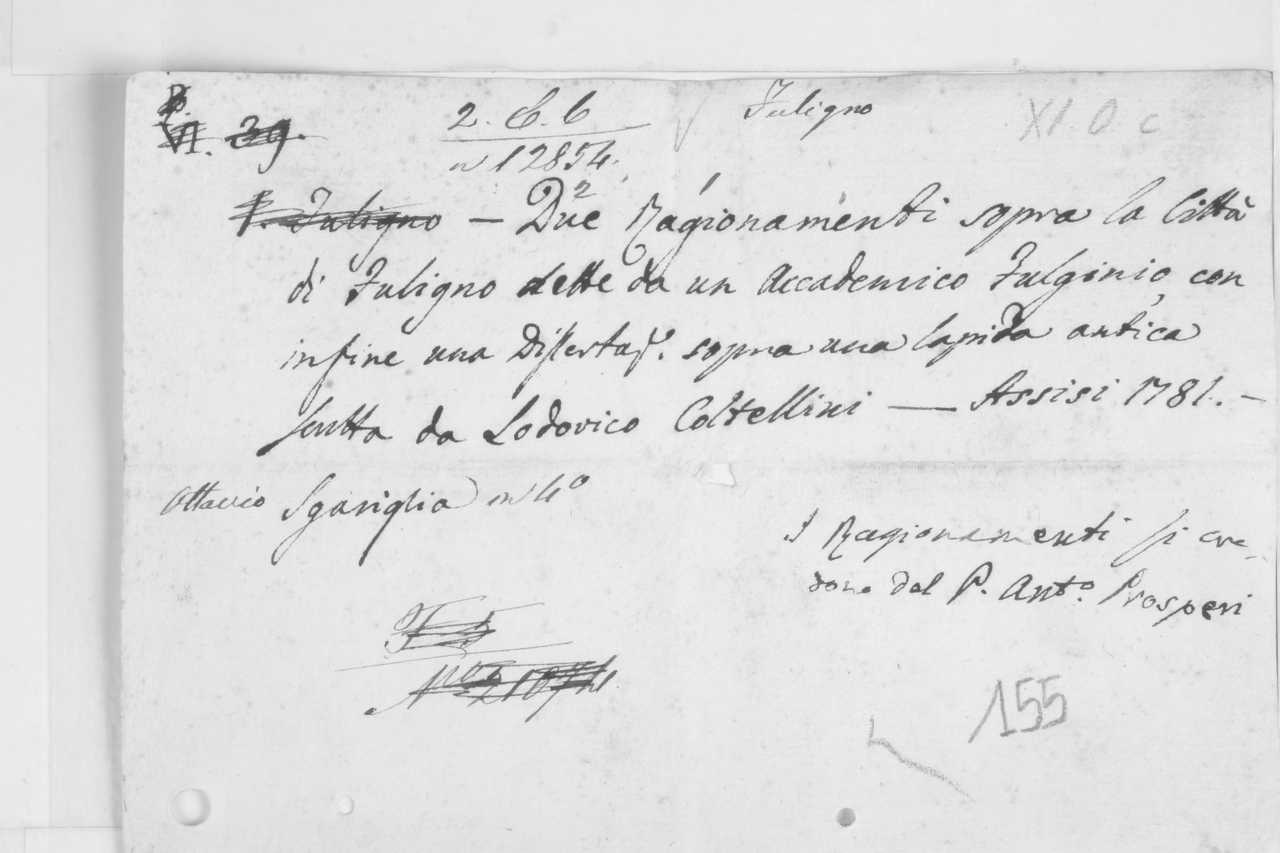 VI. 39.
2. C. 6
Fuligno
XI. O. c
n 12854.
P. Fuligno — Due 2 Ragionamenti sopra la Città
di Fuligno dette da un Accademico Fulginio, con
infine una Dissertaz.e sopra una lapida antica
scritta da Lodovico Coltellini — Assisi 1781. –
Ottavio Sgariglia in 4o
I Ragionamenti si cre-
dono del P. Anto. Prosperi
155